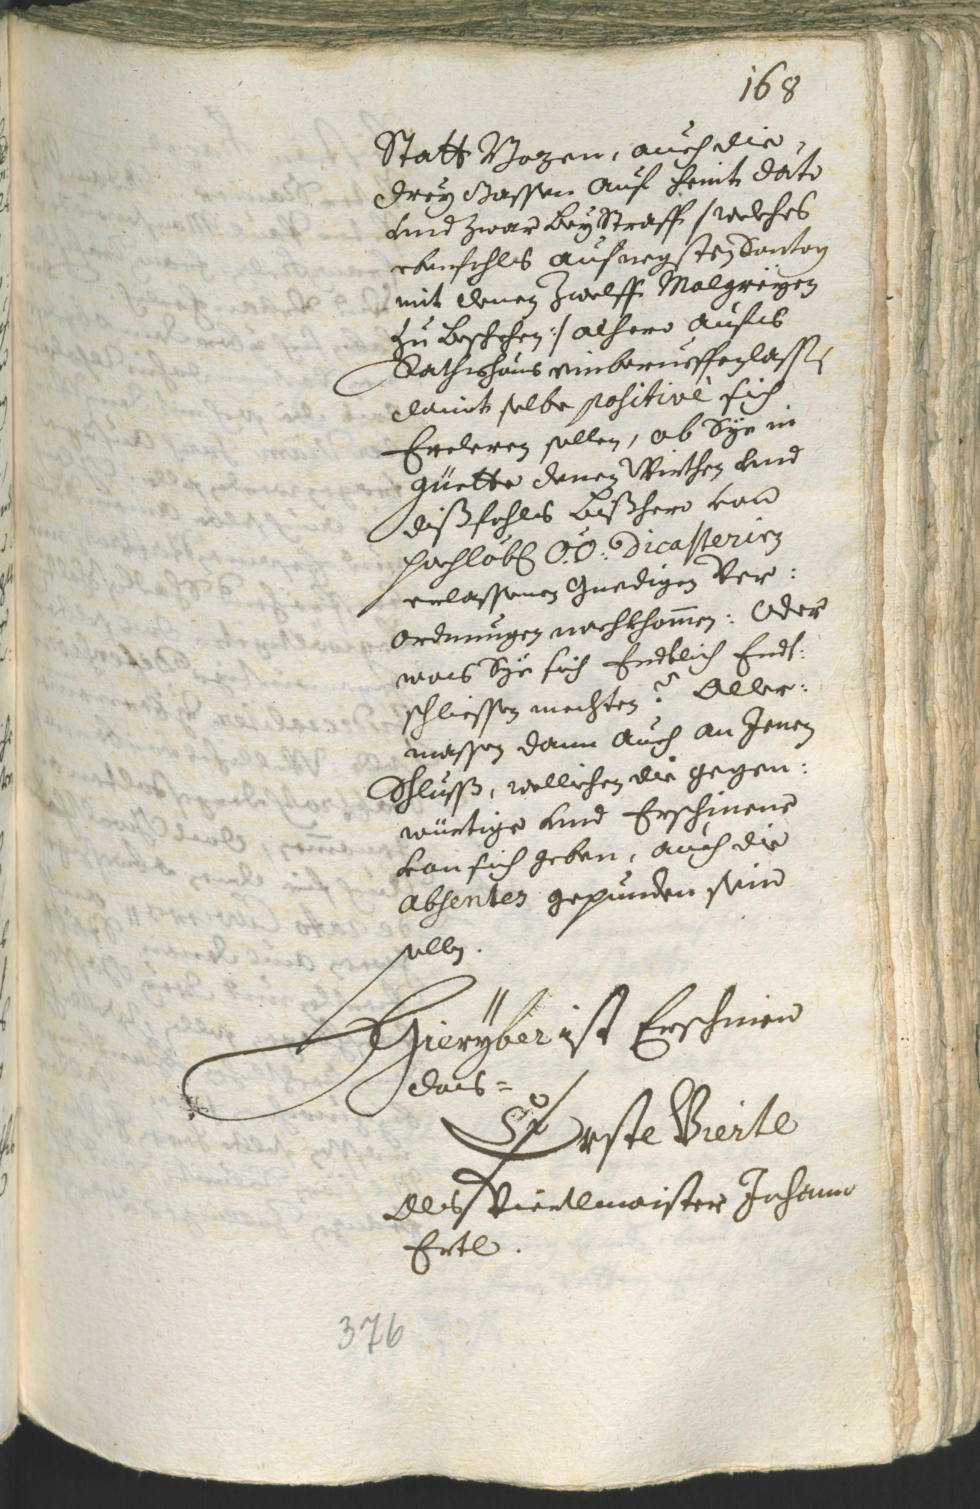 168
Statt Bozen, auch die,
drey Gassen auf heint dato
und zwar bey Straff /welches
ebenfahls auf negsten Sontag
mit denen Zwelff Malgreyen
zu beschehen:/ alhero aufs
Rathshaus einberueffen lassen
damit selbe positive sich
Ercleren sollen, ob Sye in
güette denen Wirthen und
dißfahls bißhero von
hochlöb: O:Ö: Dicasterien
erlassenen Gnedigen Ver:
ordnungen nachkhomen: Oder
was Sye sich Endtlich Endt:
schliessen mechten? Aller:
massen dann auch an Jenen
Schluss, wellichen die gegen:
würtige und Erschinene
von sich geben, auch die
absentes gepunden sein
sollen.
Hierÿber ist Erschinen
das=
Erste Viertl
Als Viertlmaister Johann
Ertl.
376